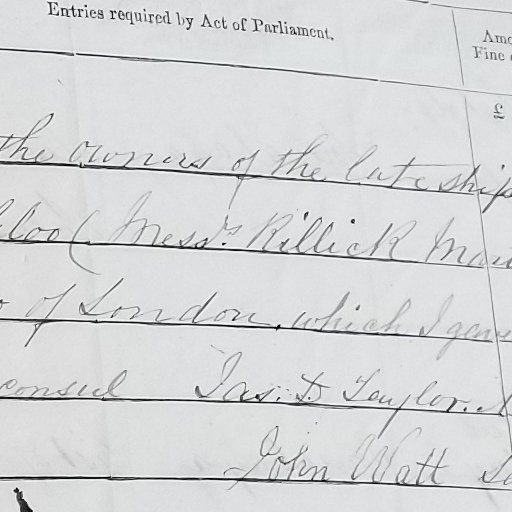 Entries required by Act of Parliament.
Amo
Fine
£
the owners of the late ship
loo ( Messrs Killick Mar
of London, which I gave
consul Jas. D Taylor.
John Watt